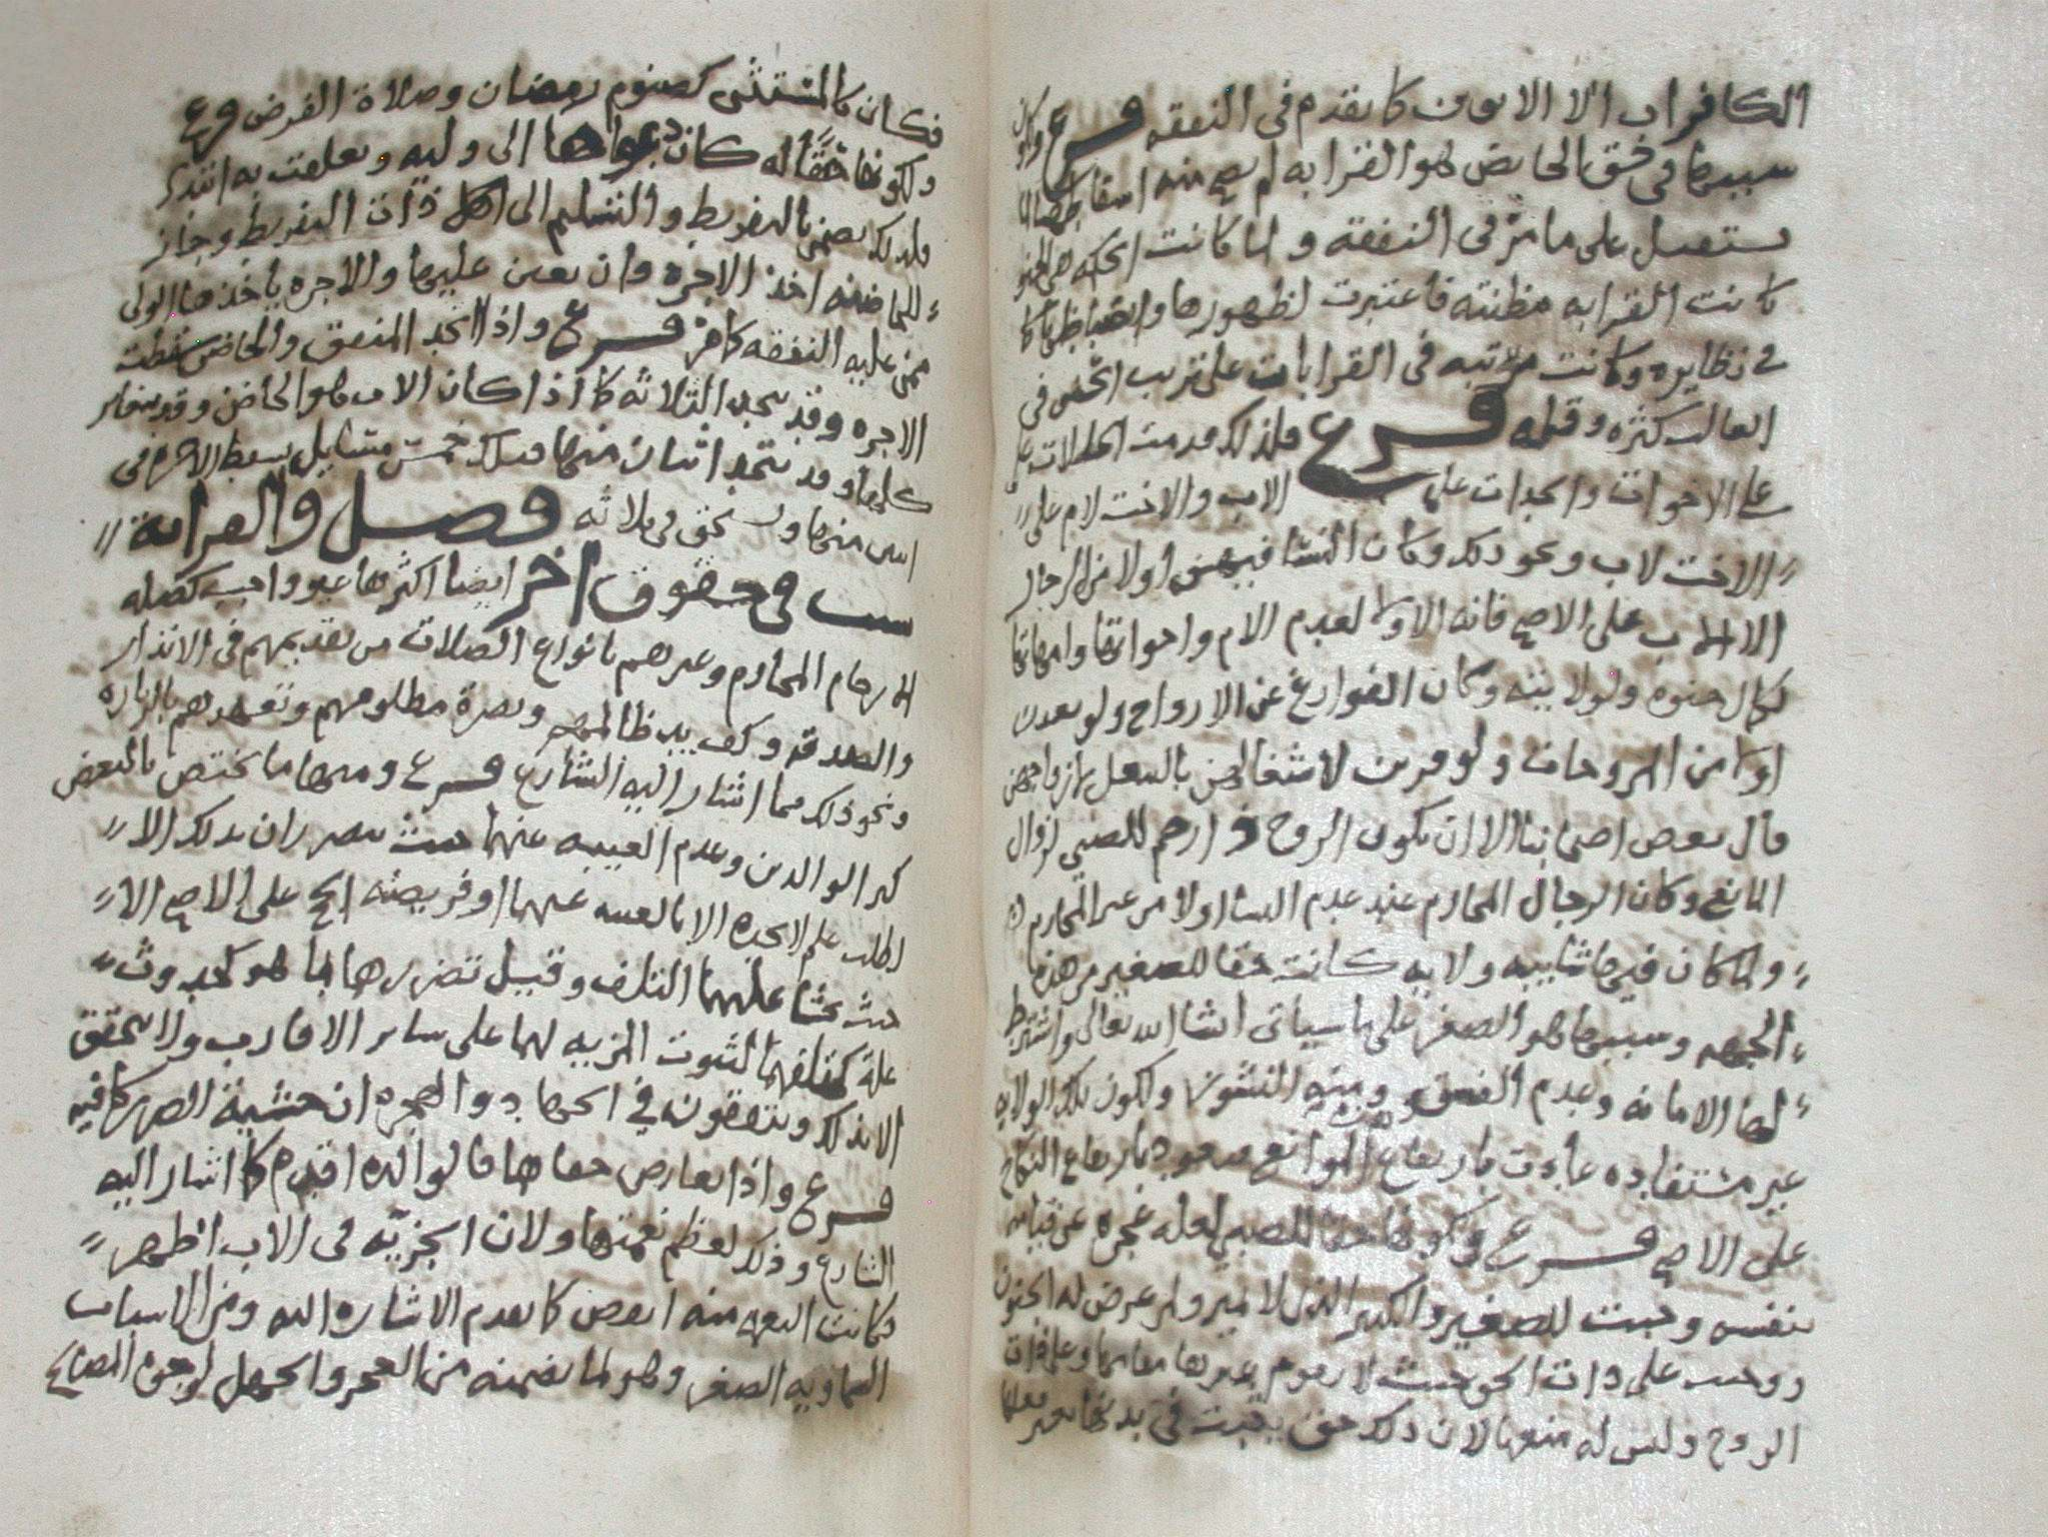 الكافران الا الابوين كما تقدم في النفقه فرع ولكون
سببها في حق الحاضن هو القرابه لم يصح منه اسقاطها لما
يستقبل على ما مر في النفقه ولما كانت الحكمه هي الحنو
كانت القرابه مظنته فاعتبرت لظهورها وانضباطها كما
في نظايره وكانت مرتبه في القرابات على ترتيب الحنو في
الغالب كثره وقله فرع فلذلك قدمت الخالات على
على الاخوات والجدات على الاب والاخت لام على
الاخت لاب ونحو ذلك وكان النسا فيهن اولا من الرجال
الا الاب على الاصح فانه الاولى لعدم الام واخواتها وامهاتها
لكمال حنوه ولولايته وكان الفوارغ عن الازواج ولو بعدن
اولى من المزوجات ولو قربن لاشتغالهن بالبعل بازواجهن
قال بعض اصحابنا الا ان يكون الزوج ذا رحم للصبي لزوال
المانع وكان الرجال المحارم عند عدم النسا اولا من غير المحارم
ولما كان فيها شايبه ولايه كانت حقا للصغير من هذه
الجهه وسببها هو الصغر على ما سياتي انشا الله تعالى واشترط
لها الامانه وعدم الفسق ومنه النشوز ولكون تلك الولايه
غير مستفاده عادت بارتفاع الموانع فتعود بارتفاع النكاح
على الاصح فرع ولكونها حقا للصبي لعله عجزه عن قيامه
بنفسه وجبت للصغير والكبير الذي لا يميز ولمن عرض له الجنون
ووجب على ذات الحق حيث لا يقوم غيرها مقامها وعلى ذات
الزوج وليس له منعها لان ذلك حق يثبت في بدنها بغير فعلها
فكان كالمستثنى كصوم رمضان وصلاة الفرض فرع
ولكونها حقا له كان دعواها الى وليه وتعلقت به
ولذلك يضمن بالتفريط والتسليم الى اكل ذات التفريط وجاز
للحاضنه اخذ الاجره وان تعين عليها والاجره ياخذها الولي
ممن عليه النفقه كما مر فرع واذا اتحد المنفق والحاضن سقطت
الاجره وقد يتحد الثلاثه كما اذا كان الاب هو الحاضن وقد يتغاير
كلها وقد يتحد اثنان منها فتلك خمس مسايل يسقط الاجره في
اثنين منها ويستحق في ثلاثه فصل والقرابة
سبب في حقوق اخر ايضا اكثرها غير واجب كصله
الارحام المحارم وغيرهم بانواع الصلات من تقديمهم في الانذار
والصدقه وكف يد ظالمهم ونصرة مظلومهم وتعهدهم بالزياره
ونحو ذلك مما اشار اليه الشارع فرع ومنها ما يختص بالبعض
كبر الوالدين وعدم الغيبه عنهما حيث يتضرران بذلك الا
لطلب علم لا يجده الا بالغيبه عنهما او فريضته الحج على الاصح الا
حيث يخشا عليهما التلف وقبيل تضررها انما هو كحدوث
علة كمتلفهما لثبوت المزيه لهما على ساير الاقارب ولا يتحقق
الا بذلك ويتفقون في الجهاد والهجره ان خشية الضرر كافيه
فرع واذا تعارض حقاهما فالوالده اقدم كما اشار اليه
الشارع وذلك لعظم نعمتها ولان الجزيّه في الاب اظهر
فكانت النعمه منه انقص كما تقدم الاشاره اليه ومن الاسباب
السماويه الصغر وهو لما تضمنه من العجز والجهل لوجوه المصالح